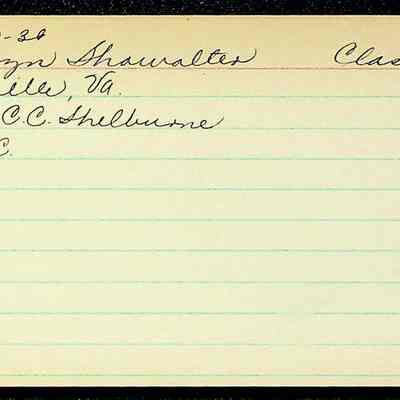 -36
yn Showalter Clas
ille, Va.
C.C. Shelburne
C.